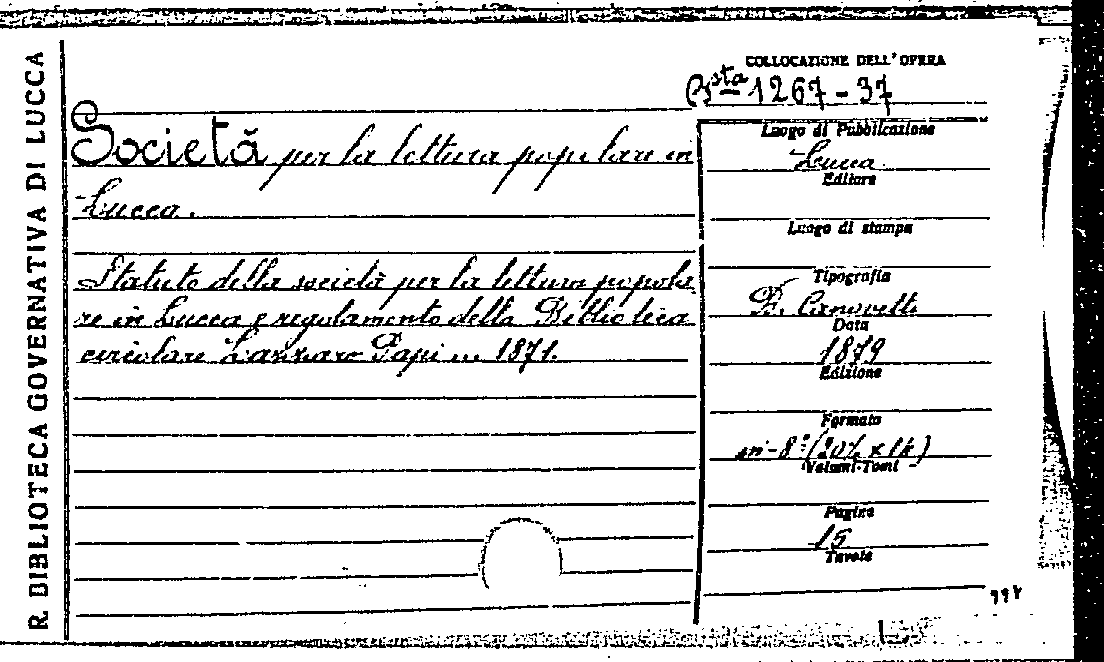 R. DIBLIOTECA GOVERNATIVA DI LUCCA
COLLOCAZIONE DELL'OPERA
Bsta 1267-37
Società per la lettura popolare in
Lucca.
Statuto della società per la lettura popola
re in Lucca e regolamento della Biblioteca
circolare Lazzaro Papi ... 1871.
Luogo di Pubblicazione
Lucca
Editore
Luogo di stampa
Tipografia
B. Canovetti
Data
1879
Edizione
Formato
in-8° (20½ x 14)
Volumi-Tomi
Pagine
15
Tavole